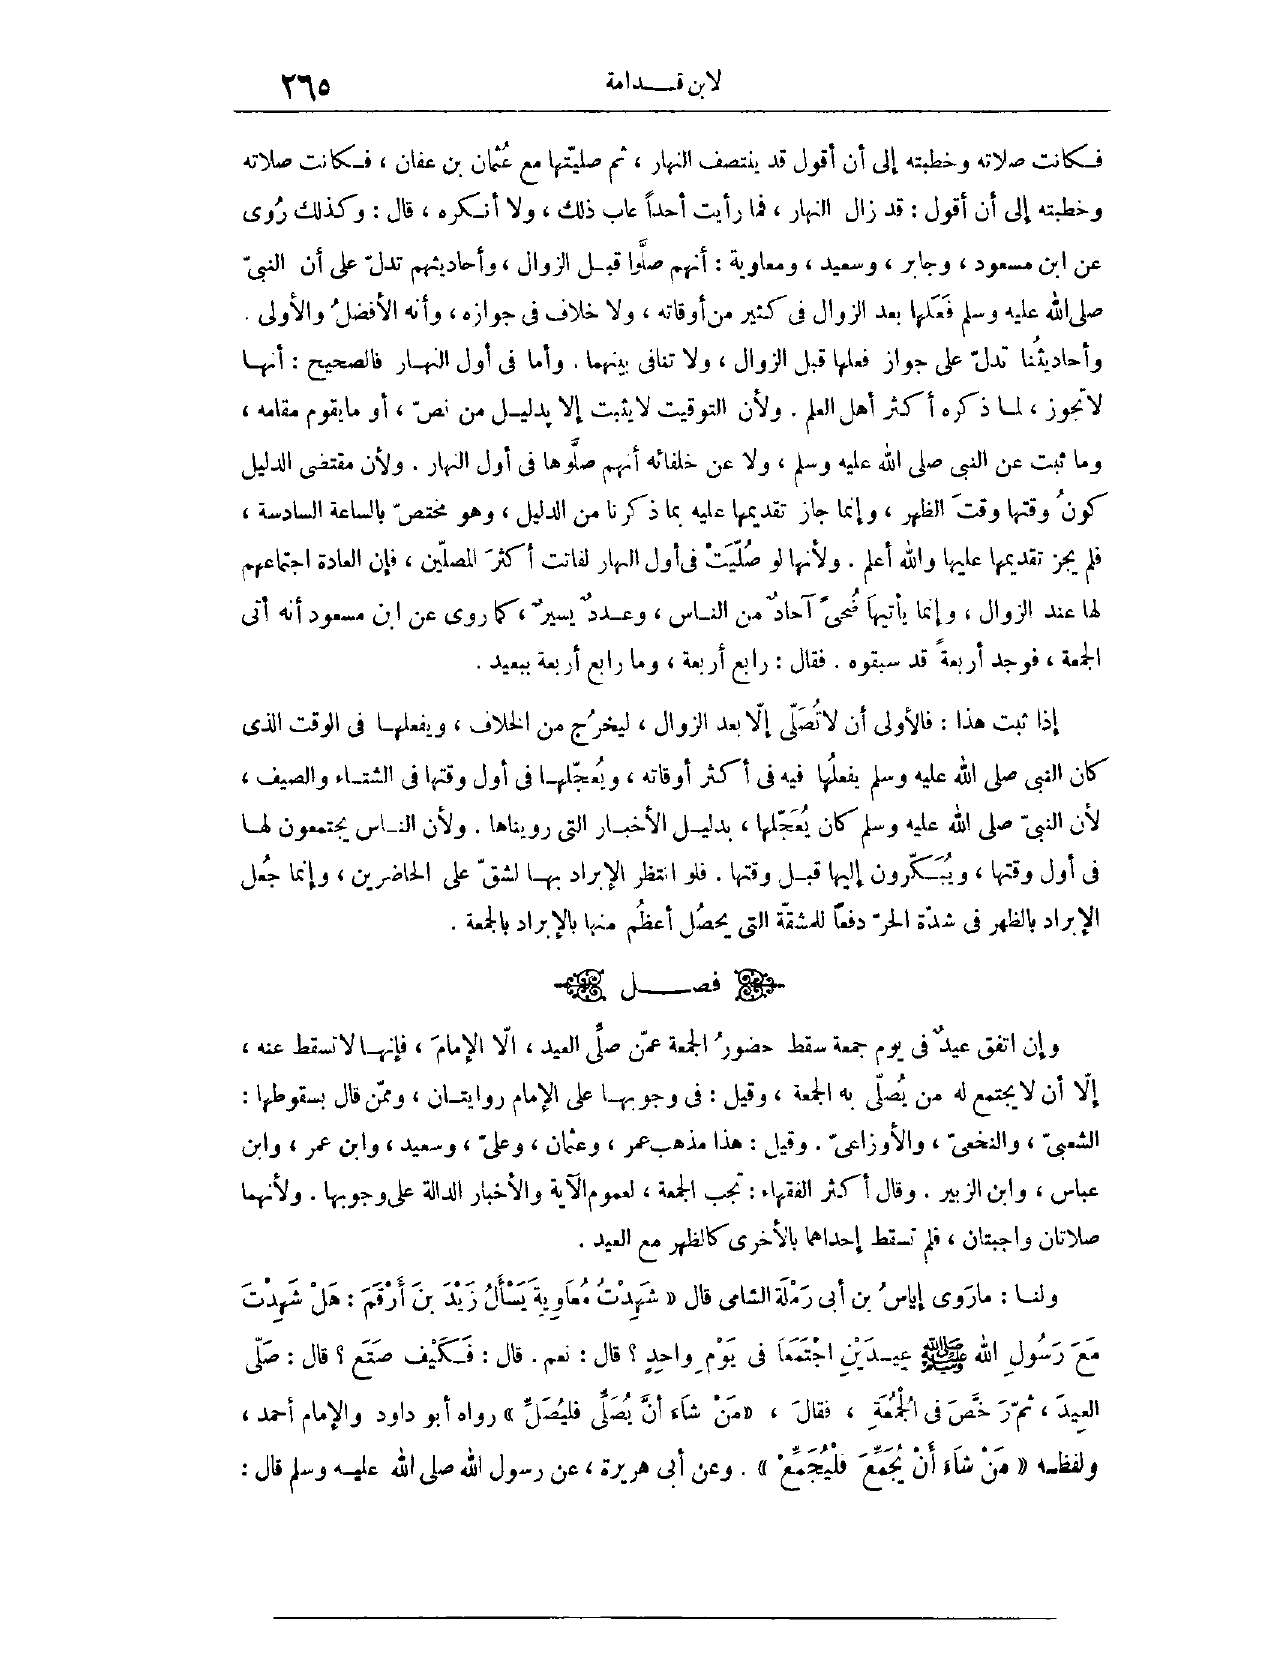 لابن قدامة ٢٦٥
فكانت صلاته وخطبته إلى أن أقول قد ينتصف النهار ، ثم صليتها مع عُثمان بن عفان ، فكانت صلاته
وخطبته إلى أن أقول : قد زال النهار ، فما رأيت أحداً عاب ذلك ، ولا أنكره ، قال : وكذلك رُوى
عن ابن مسعود ، وجابر ، وسعيد ، ومعاوية : أنهم صلَّوا قبل الزوال ، وأحاديثهم تدلّ على أن النبىّ
صلى الله عليه وسلم فَعَلها بعد الزوال فى كثير من أوقاته ، ولا خلاف فى جوازه ، وأنه الأفضلُ والأولى .
وأحاديثُنا تدلّ على جواز فعلها قبل الزوال ، ولا تنافى بينهما . وأما فى أول النهار فالصحيح : أنها
لاتجوز ، لما ذكره أكثر أهل العلم . ولأن التوقيت لايثبت إلا بدليل من نصّ ، أو مايقوم مقامه ،
وما ثبت عن النبى صلى الله عليه وسلم ، ولا عن خلفائه أنهم صلَّوها فى أول النهار . ولأن مقتضى الدليل
كونُ وقتها وقتَ الظهر ، وإنما جاز تقديمها عليه بما ذكرنا من الدليل ، وهو مختصّ بالساعة السادسة ،
فلم يجز تقديمها عليها والله أعلم . ولأنها لو صُلّيَتْ فى أول النهار لفاتت أكثرَ المصلّين ، فإن العادة اجتماعهم
لها عند الزوال ، وإنما يأتيها ضُحىً آحادٌ من الناس ، وعددٌ يسيرٌ ، كما روى عن ابن مسعود أنه أتى
الجمعة ، فوجد أربعةً قد سبقوه . فقال : رابع أربعة ، وما رابع أربعة ببعيد .
إذا ثبت هذا : فالأولى أن لاتُصَلّى إلّا بعد الزوال ، ليخرُج من الخلاف ، ويفعلها فى الوقت الذى
كان النبى صلى الله عليه وسلم يفعلُها فيه فى أكثر أوقاته ، ويُعجّلها فى أول وقتها فى الشتاء والصيف ،
لأن النبىّ صلى الله عليه وسلم كان يُعَجّلها ، بدليل الأخبار التى رويناها . ولأن الناس يجتمعون لها
فى أول وقتها ، ويُبَكّرون إليها قبل وقتها . فلو انتظر الإبراد بها لشقّ على الحاضرين ، وإنما جُعل
الإبراد بالظهر فى شدّة الحرّ دفعاً للمشقّة التى يحصُل أعظُم منها بالإبراد بالجمعة .
فصل
وإن اتفق عيدٌ فى يوم جمعة سقط حضورُ الجمعة عمّن صلَّى العيد ، الّا الإمامَ ، فإنها لاتسقط عنه ،
إلّا أن لايجتمع له من يُصلّى به الجمعة ، وقيل : فى وجوبها على الإمام روايتان ، وممّن قال بسقوطها :
الشعبىّ ، والنخعىّ ، والأوزاعىّ . وقيل : هذا مذهب عمر ، وعثمان ، وعلىّ ، وسعيد ، وابن عمر ، وابن
عباس ، وابن الزبير . وقال أكثر الفقهاء : تجب الجمعة ، لعموم الآية والأخبار الدالة على وجوبها . ولأنهما
صلاتان واجبتان ، فلم تسقط إحداهما بالأخرى كالظهر مع العيد .
ولنا : مارَوى إياسُ بن أبى رَمْلَة الشامى قال « شَهِدْتُ مُعَاوِيةَ يَسْأَلُ زَيْدَ بنَ أَرْقَمَ : هَلْ شَهِدْتَ
مَعَ رَسُولِ الله ﷺ عِيدَيْنِ اجْتَمَعَا فى يَوْمٍ واحِدٍ ؟ قال : نعم . قال : فَكَيْفَ صَنَع ؟ قال : صَلّى
العِيدَ ، ثمّ رَخَّصَ فى الْجُمُعَةِ ، فقالَ ، «مَنْ شاءَ أنَّ يُصَلِّىَ فليُصَلِّ » رواه أبو داود والإمام أحمد ،
ولفظه « مَنْ شَاءَ أَنْ يُجَمِّعَ فلْيُجَمِّعْ » . وعن أبى هريرة ، عن رسول الله صلى الله عليه وسلم قال :